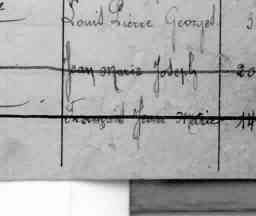 Louis Pierre Georges
Jean Marie Joseph 20
François Jean Marie 14